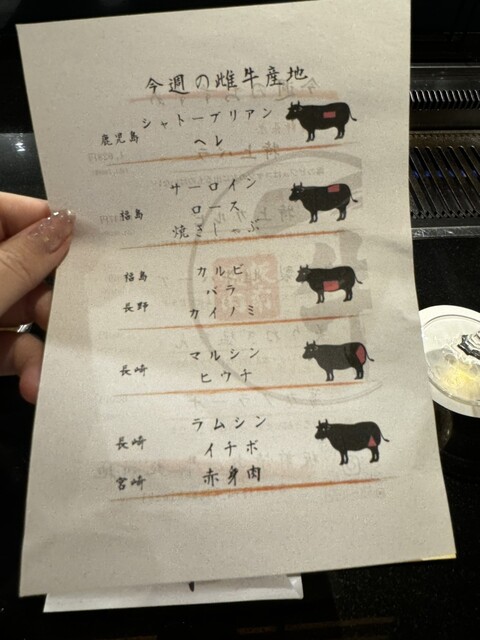 今週の雌牛産地
シャトーブリアン
鹿児島
ヘレ
サーロイン
福島
ロース
焼きしゃぶ
福島
カルビ
バラ
長野
カイノミ
マルシン
長崎
ヒウチ
ラムシン
長崎
イチボ
宮崎
赤身肉